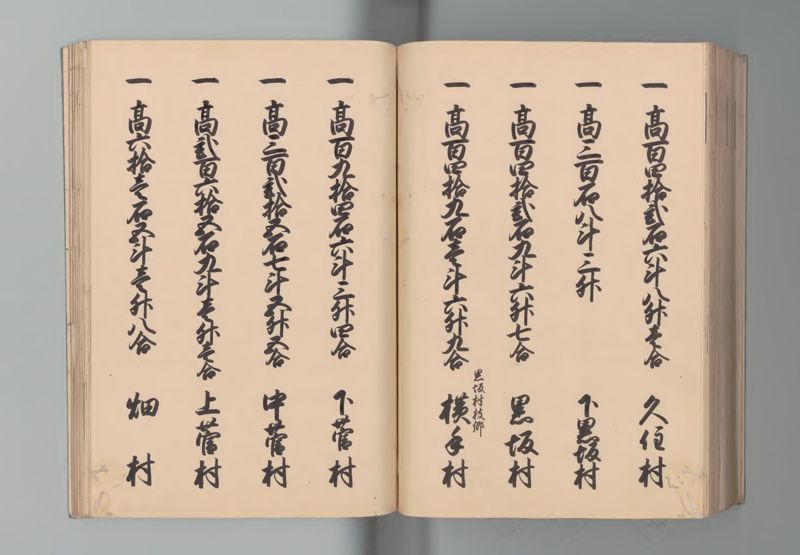 一 高百四拾弐石六斗八升壱合 久住村
一 高三百石八斗三升 下黒坂村
一 高百四拾弐石九斗六升七合 黒坂村
一 高百四拾九石壱斗六升九合 黒坂村枝郷 横手村
一 高百九拾四石六斗三升四合 下菅村
一 高三百弐拾五石七斗五升五合 中菅村
一 高弐百六拾五石九斗壱升壱合 上菅村
一 高六拾壱石五斗壱升八合 畑村